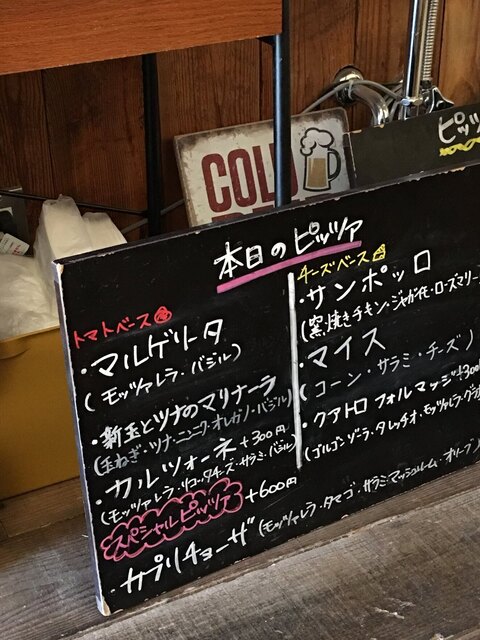 COLD
ピッツ
本日のピッツァ
トマトベース
・マルゲリータ
(モッツァレラ・バジル)
・新玉とツナのマリナーラ
(玉ねぎ・ツナ・ニンニク・オレガノ・バジル)
・カルツォーネ +300円
(モッツァレラ・リコッタチーズ・サラミ・バジル)
チーズベース
・サンポッロ
(窯焼きチキン・ジャガイモ・ローズマリー
・マイス
(コーン・サラミ・チーズ)
・クアトロフォルマッジ +300
(ゴルゴンゾーラ・タレッチオ・モッツァレラ・グラナ
スペシャルピッツァ +600円
・カプリチョーザ (モッツァレラ・タマゴ・サラミ・マッシュルーム・オリーブ)